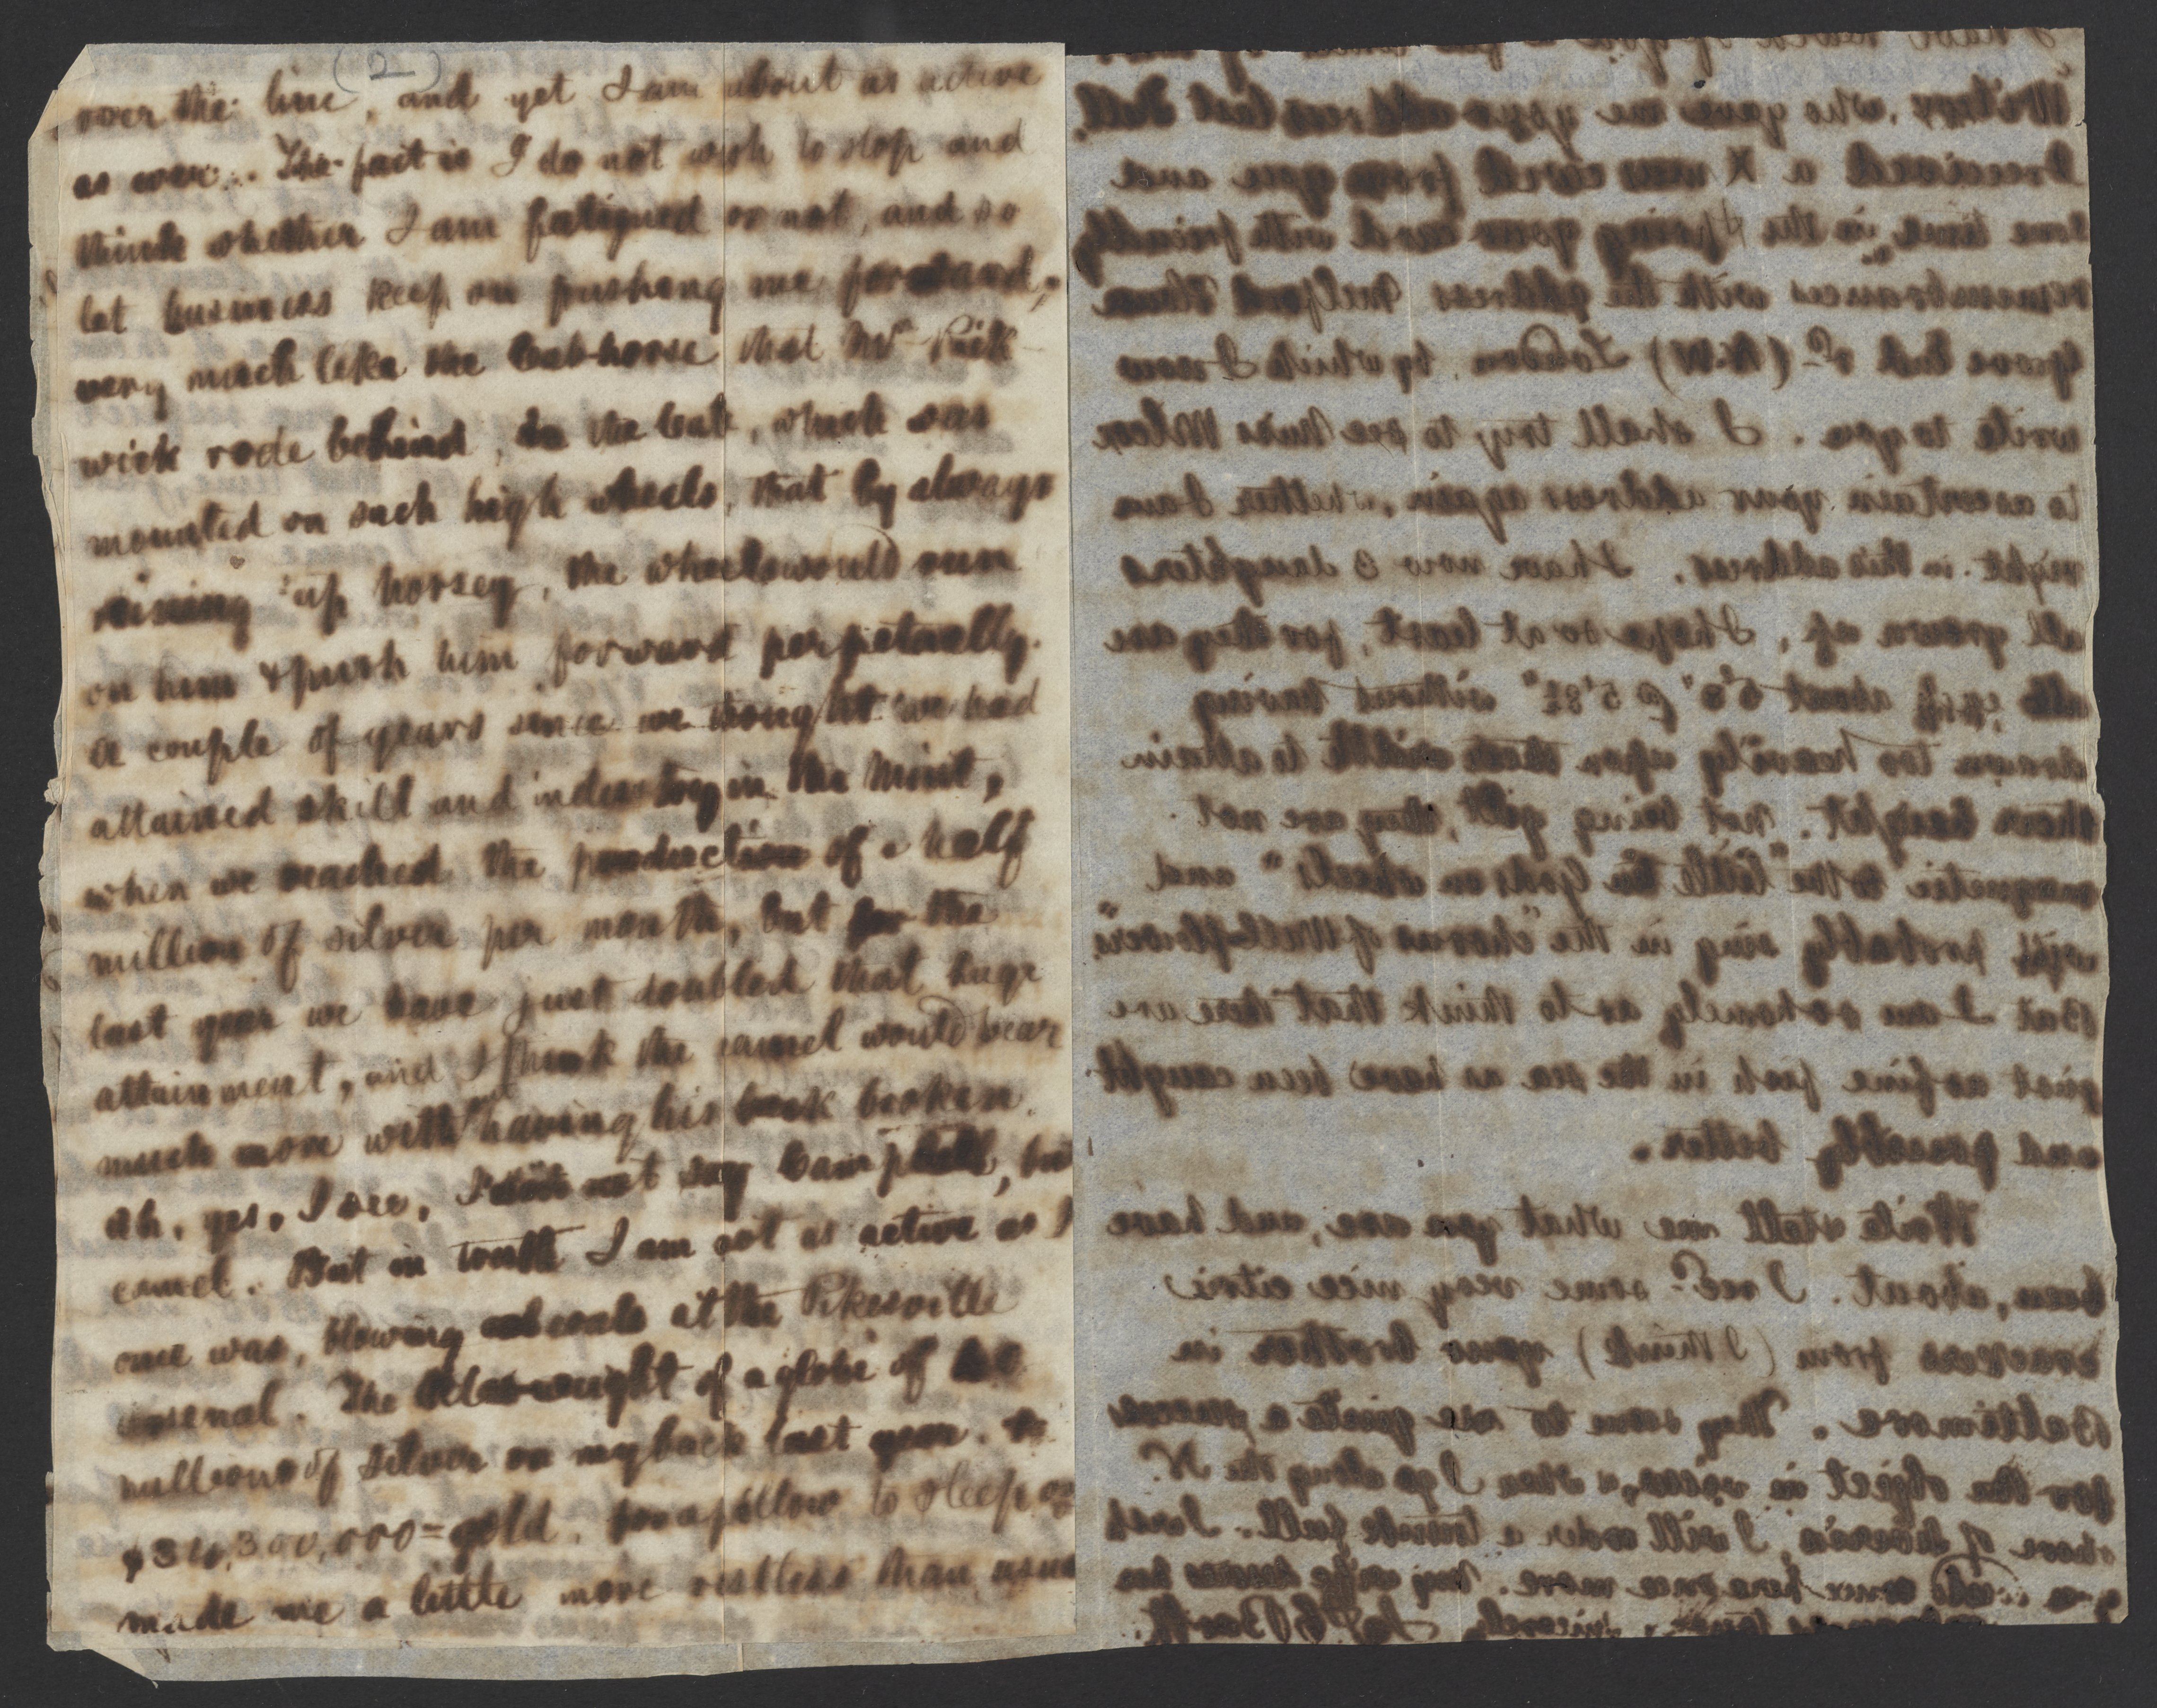 (2)
over the line, and yet I am about as active
as ever. The fact is I do not wish to stop and
think whether I am fatigued or not, and so
let business keep on pushing me forward,
very much like the cab-horse that Mr Pick-
wick rode behind, in the cab, which was
mounted on such high wheels, that by always
reining up horsey, the wheels would run
on him & push him forward perpetually.
A couple of years since we thought we had
attained skill and industry in the Mint,
when we reached the production of a half
million of silver per month, but for the
last year we have just doubled that huge
attainment, and I think the camel would bear
much more without having his back broken.
Ah, yes, I see, I did not say Campbell, but
camel. But in truth I am not as active as I
once was, blowing coals at the Pikesville
arsenal. The weight of a globe of
millions of silver on my back last year.
000,000= gold. for a pillow to sleep on
made me a little more restless than usual
who gave me your address last Fall.
I received a Xmas card from you and
some time in the Spring your card with friendly
remembrances with the address Milford House
Grove End Rd (N.W) London, by which I now
write to you. I shall try to see Miss
to ascertain your address again, whether I am
right in this address. I have now 3 daughters
all grown up, I hope so at least, for they are
about 5'6" @ 5'8½" without having
drawn too heavily upon their width to attain
their height. Not being gilt, they are not
magnetic to the "little tin Gods on wheels" and
will probably sing in the "chorus of Wall-flowers".
But I am so homely as to think that there are
just as fine fish in the sea as have been caught
and possibly better.
Write & tell me what you are, and have
been, about. I recd some very nice citric
crackers from (I think) your brother in
Baltimore. They seem to me quite a success
for the object in view, & when I go along the N.
shore of Siberia I will order a trunk full.
here once more. My wife desires her
sincerely Jas C Booth.